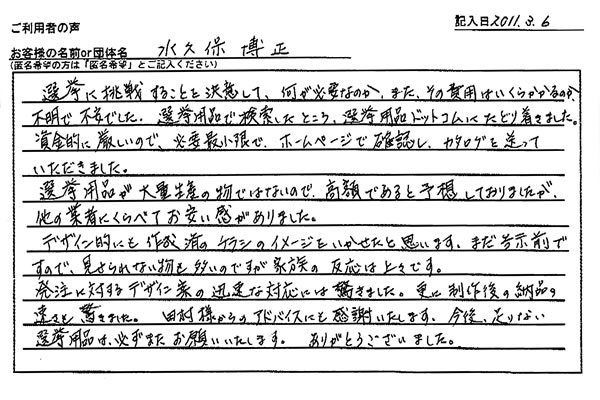 ご利用者の声
記入日2011.3.6
お客様の名前or団体名 水久保 博正
(匿名希望の方は「匿名希望」とご記入ください)
選挙に挑戦することを決意して、何が必要なのか、また、その費用はいくらかかるのか、
不明で不安でした。選挙用品で検索したところ、選挙用品ドットコムにたどり着きました。
資金的に厳しいので、必要最小限で、ホームページで確認し、カタログを送って
いただきました。
選挙用品が大量生産の物ではないので、高額であると予想しておりましたが、
他の業者にくらべてお安い感がありました。
デザイン的にも作成済のチラシのイメージをいかせたと思います。まだ告示前で
すので、見せられない物も多いのですが家族の反応は上々です。
発注に対するデザイン案の迅速な対応には驚きました。更に制作後の納品の
速さも驚きました。田村様からのアドバイスにも感謝いたします。今後、足りない
選挙用品は、必ずまたお願いいたします。ありがとうございました。